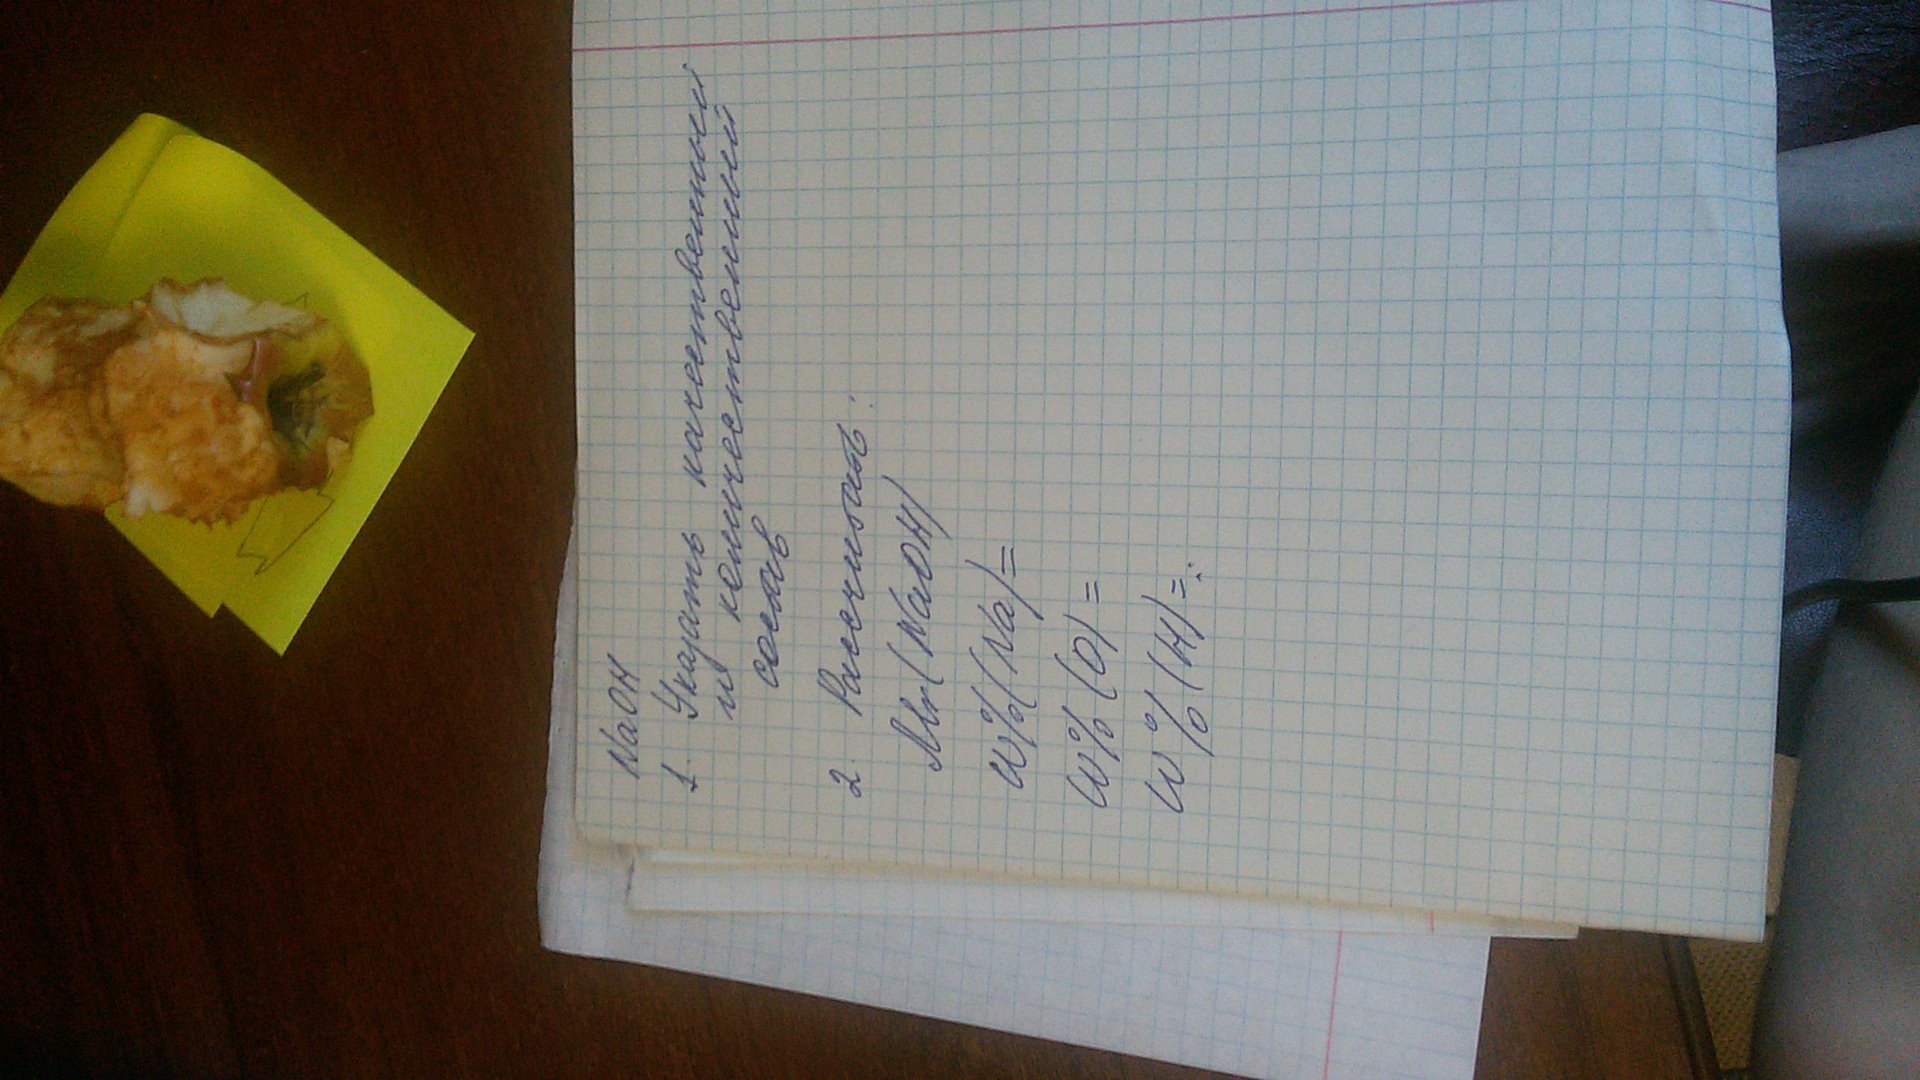 NaOH
1. Указать качественный
и количественный
состав
2. Рассчитать:
Mr(NaOH)
W%(Na)=
W%(O)=
W%(H)=